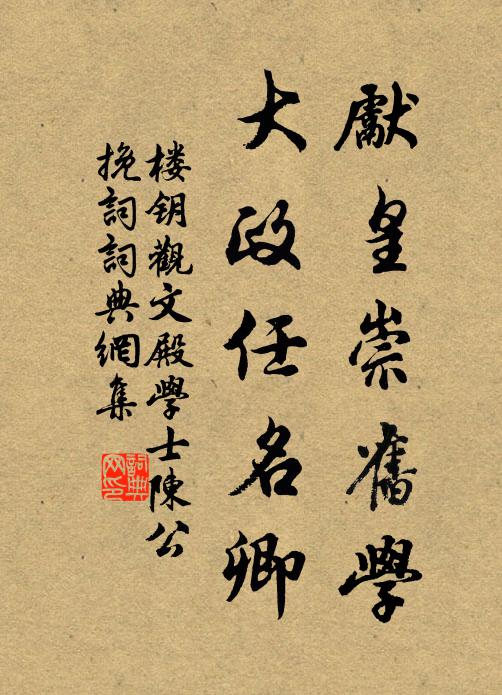 獻皇崇舊學
大政任名卿
楼钥觀文殿學士陳公
挽詞詞典網集
詞典
网印